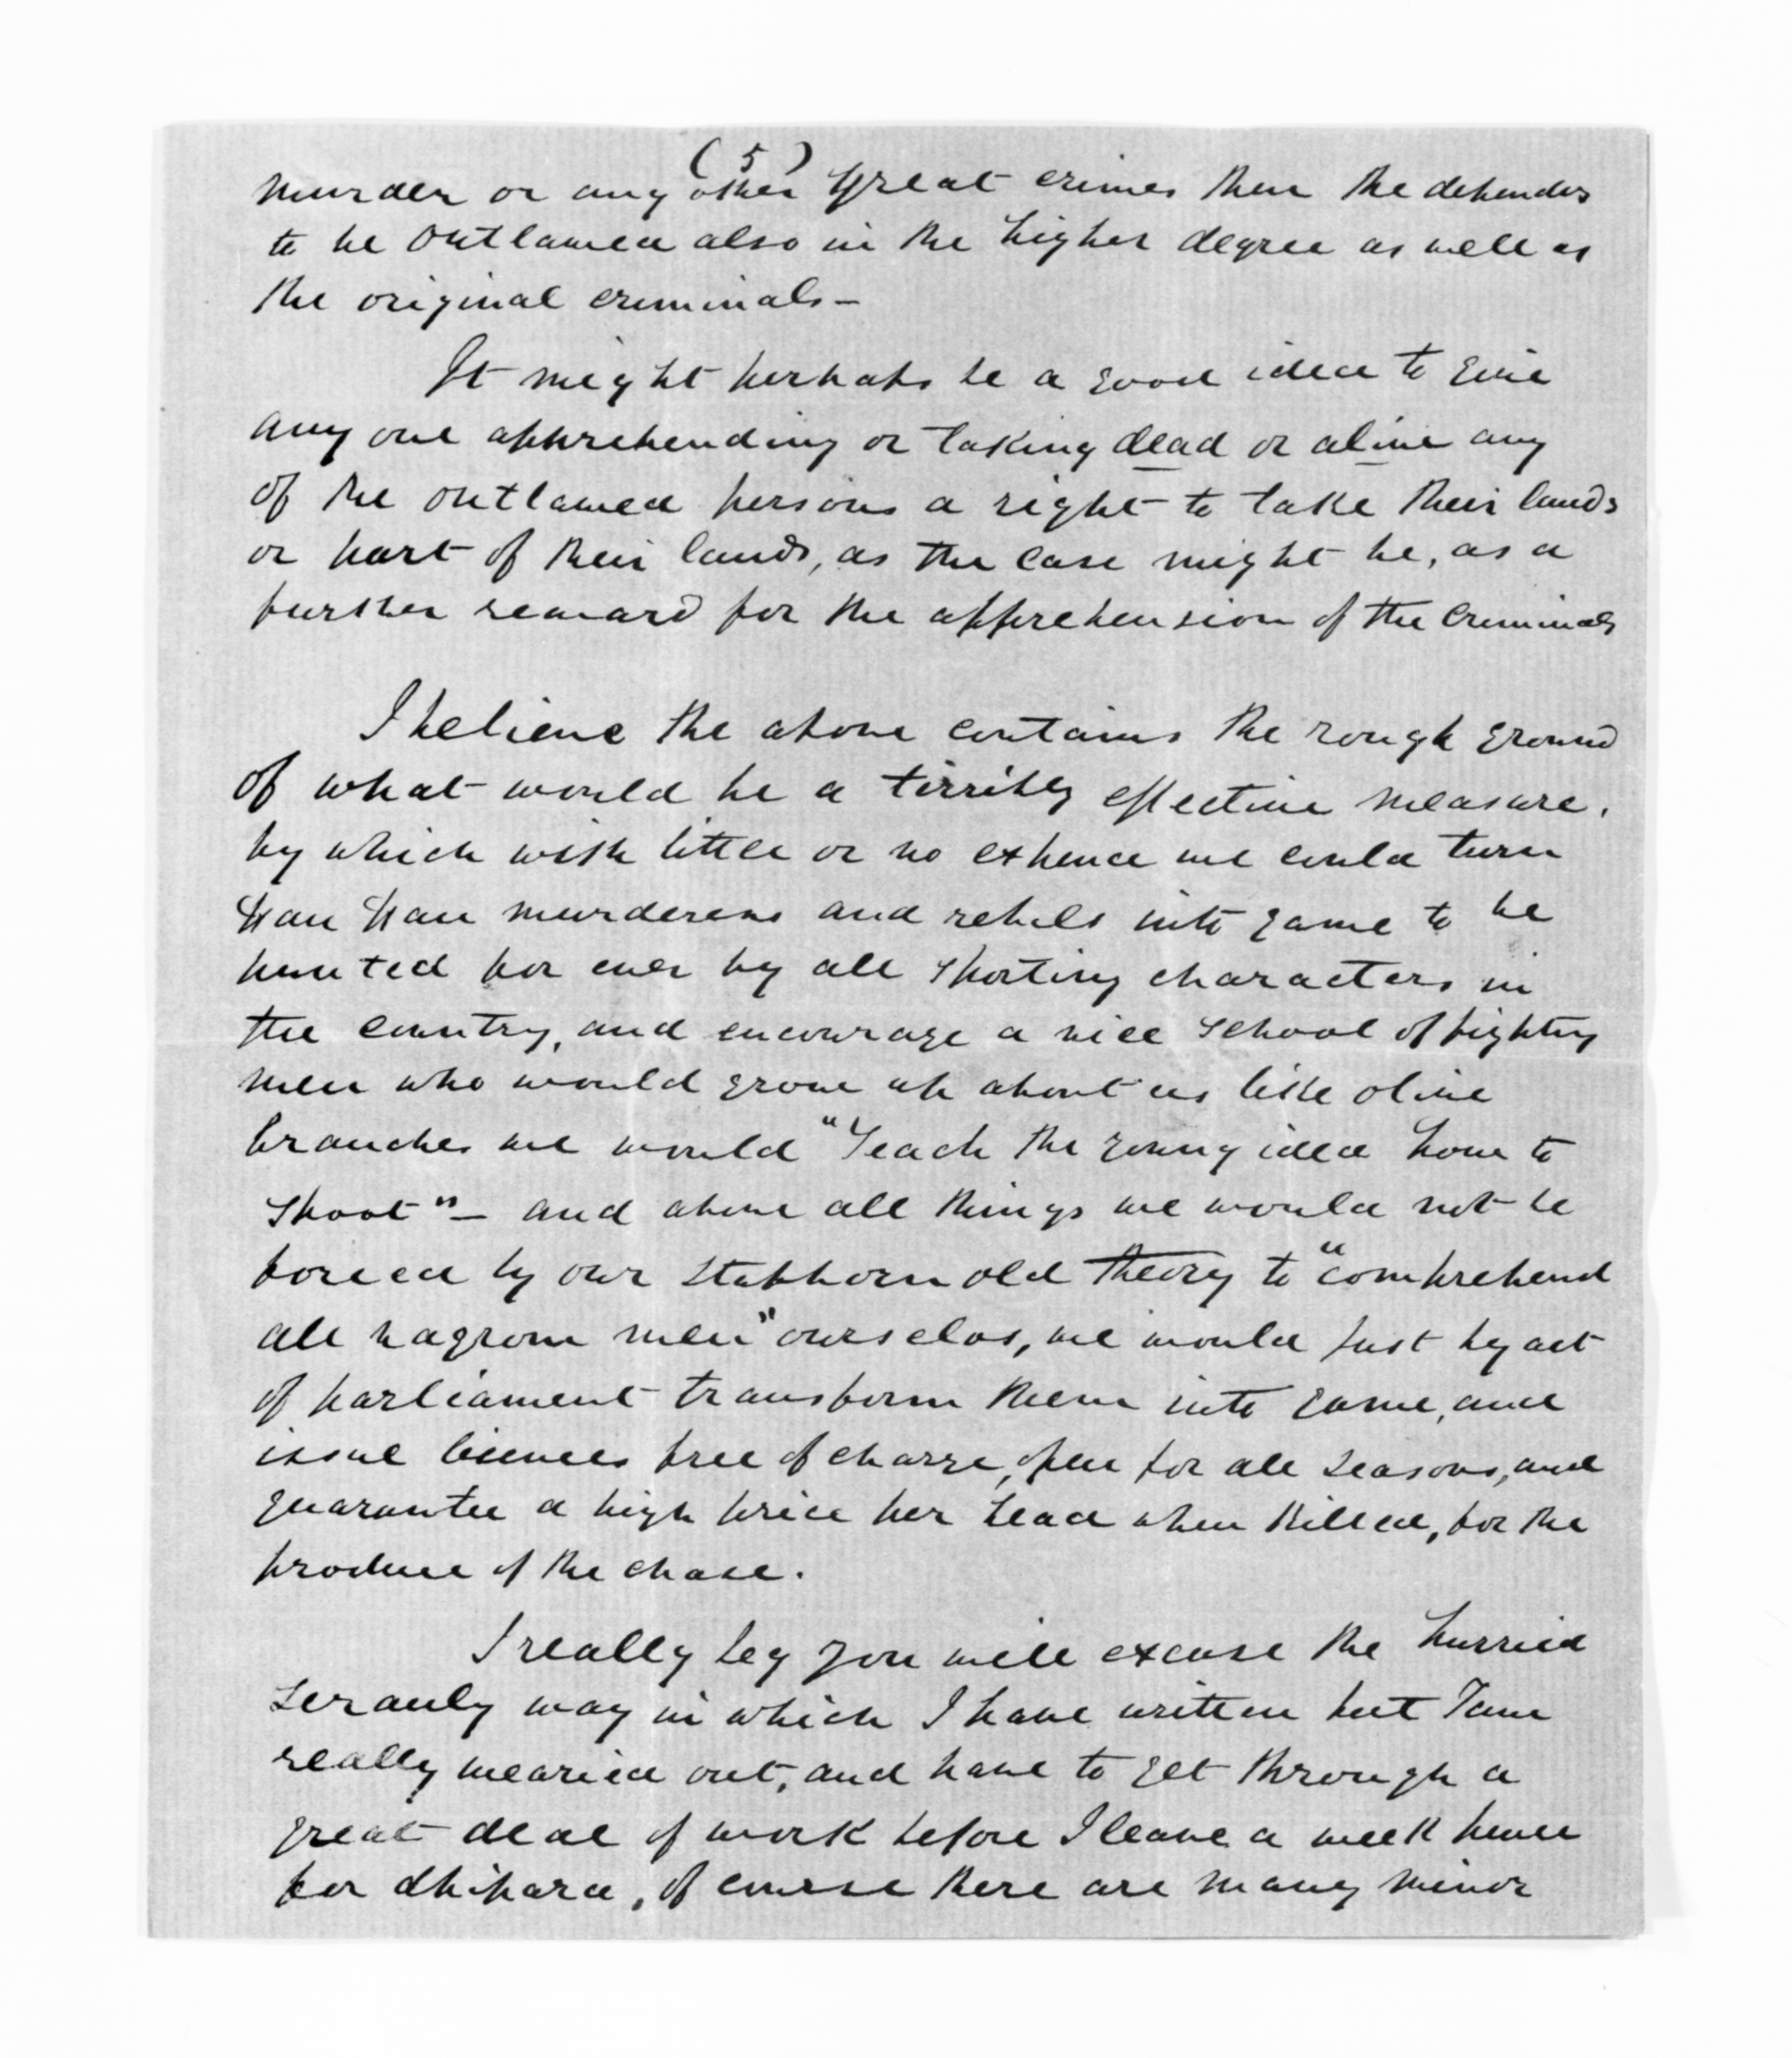 (5)
murder or any other great crimes then the defenders
to be outlawed also in the higher degree as well as
the original criminals—
It might perhaps be a good idea to give
any one apprehending or taking dead or alive any
of the outlawed persons a right to take their lands
or part of their lands, as the case might be, as a
further reward for the apprehension of the criminals
I believe the above contains the rough ground
of what would be a terribly effective measure.
by which with little or no expence we could turn
Hau Hau murderers and rebels into game to be
hunted for ever by all sporting characters in
the country, and encourage a nice school of fighting
men who would grow up about us like olive
branches we would "Teach the young idea how to
shoot"— and above all things we would not be
forced by our stubborn old theory to "comprehend
all vagrom men" ourselvs, we would just by act
of parliament transform them into game, and
issue licences free of charge, open for all seasons, and
guarantee a high price per head when killed, for the
produce of the chase.
I really beg you will excuse the hurried
scrawly way in which I have written but I am
really wearied out, and have to get through a
great deal of work before I leave a week hence
for Ohipara, of course there are many minor